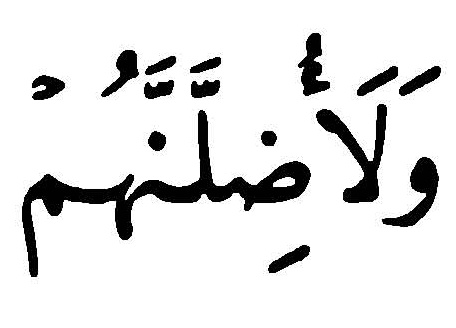 وَلَأُضِلَّنَّهُمْ